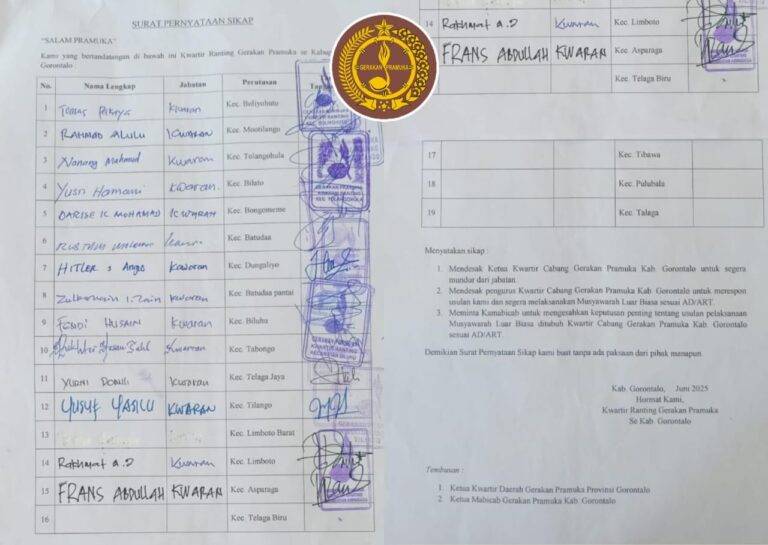 SURAT PERNYATAAN SIKAP
"SALAM PRAMUKA"
Kami yang bertandatangan di bawah ini Kwartir Ranting Gerakan Pramuka se Kabu
Gorontalo
No. Nama Lengkap Jabatan Perutusan
1 Kwaran Kec. Boliyohuto
2 RAHMAD ALULU KWARAN Kec. Mootilango
3 Nanang Mahmud Kwaran Kec. Tolangohula
4 Yusri Hamani Kwaran. Kec. Bilato
5 DARISE K MOHAMAD KWARAN Kec. Bongomeme
6 Kec. Batudaa
7 HITLER Kwaran Kec. Dungaliyo
8 Zulkarnain I. Zain Kwaran Kec. Batudaa pantai
9 FENDI HUSAIN Kwaran Kec. Biluhu
10 Kwaran Kec. Tabongo
11 YURNI Kwaran Kec. Telaga Jaya
12 YUSUF YASILU KWARAN Kec. Tilango
13 Kec. Limboto Barat
14 Rakhmat a.D Kwaran Kec. Limboto
15 FRANS ABDULLAH KWARAN Kec. Asparaga
16 Kec. Telaga Biru
GERAKAN PRAMUKA
14 Rakhmat a.D Kwaran Kec. Limboto
FRANS ABDULLAH KWARAN Kec. Asparaga
Kec. Telaga Biru
17 Kec. Tibawa
18 Kec. Pulubala
19 Kec. Talaga
Menyatakan sikap :
1. Mendesak Ketua Kwartir Cabang Gerakan Pramuka Kab. Gorontalo untuk segera
mundur dari jabatan.
2. Mendesak pengurus Kwartir Cabang Gerakan Pramuka Kab. Gorontalo untuk merespon
usulan kami dan segera melaksanakan Musyawarah Luar Biasa sesuai AD/ART.
3. Meminta Kamabicab untuk mengesahkan keputusan penting tentang usulan pelaksanaan
Musyawarah Luar Biasa ditubuh Kwartir Cabang Gerakan Pramuka Kab. Gorontalo
sesuai AD/ART.
Demikian Surat Pernyataan Sikap kami buat tanpa ada paksaan dari pihak manapun
Kab. Gorontalo, Juni 2025
Hormat Kami,
Kwartir Ranting Gerakan Pramuka
Se Kab. Gorontalo
Tembusan :
1. Ketua Kwartir Daerah Gerakan Pramuka Provinsi Gorontalo
2. Ketua Mabicab Gerakan Pramuka Kab. Gorontalo